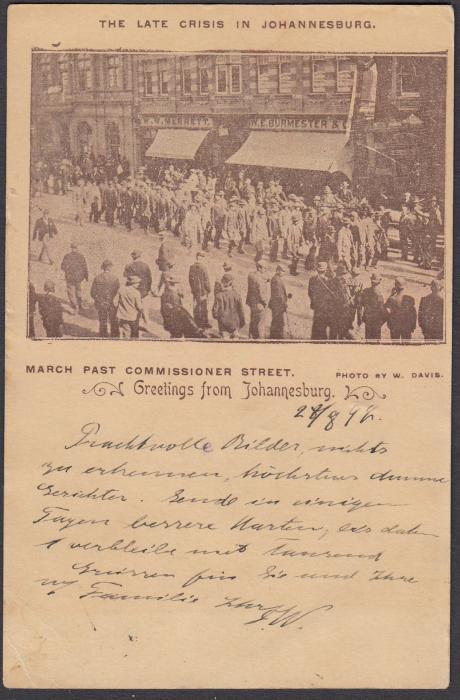 THE LATE CRISIS IN JOHANNESBURG.
W. W. MERRETT W. E. BURMESTER & C
MARCH PAST COMMISSIONER STREET. PHOTO BY W. DAVIS.
Greetings from Johannesburg.
Prachtvolle Bilder, nichts
zu erkennen, höchstens dumme
Gesichter. Sende in einigen
Tagen bessere Karten, bis dahin
verbleibe mit tausend
Grüssen für Sie und Ihre
Familie Ihr
J.W.